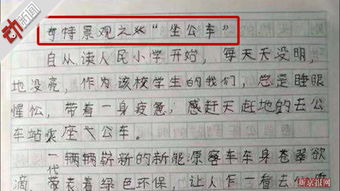 动新闻
奇特景观之“坐公车”
自从读人民小学开始，每天天没明，
地没亮，作为该校学生的我们，总是睡眼
惺忪，带着一身疲惫，感赶天赶地的去公
车站乘座大公车。
一辆辆崭新的新能源客车车身苍翠欲
滴，代表着绿色环保，让人乍一看去
新京报网